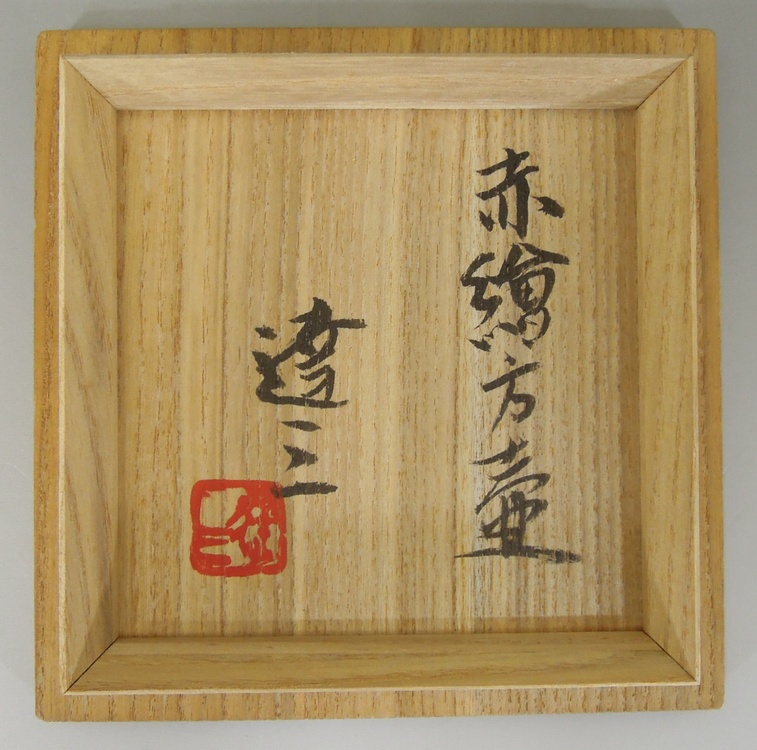 赤繪方壺
達三